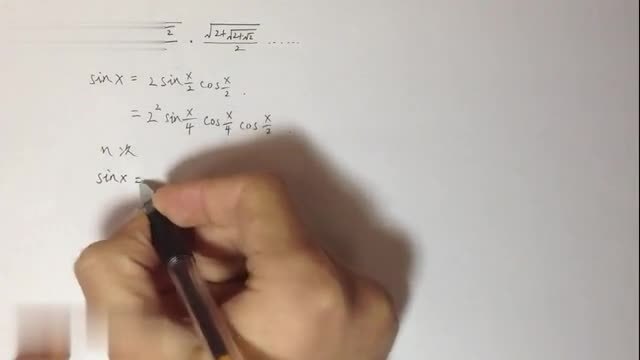 2 · √(2+√(2+√2))/2 ......
sinx = 2 sin x/2 cos x/2 .
= 2² sin x/4 cos x/4 cos x/2 .
n 次
sinx =